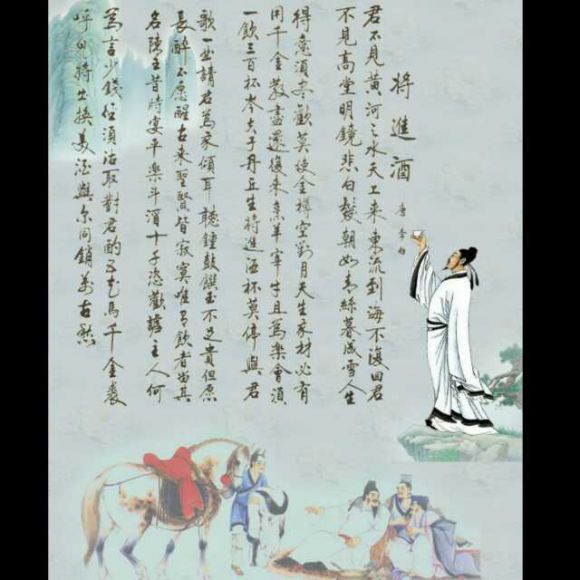 將進酒
唐 李白
君不見黃河之水天上來東流到海不復回君
不見高堂明鏡悲白髮朝如青絲暮成雪人生
得意須盡歡莫使金樽空對月天生我材必有
用千金散盡還復來烹羊宰牛且爲樂會須
一飲三百杯岑夫子丹丘生將進酒杯莫停與君
歌一曲請君爲我傾耳聽鐘鼓饌玉不足貴但愿
長醉不愿醒古來聖賢皆寂寞唯有飲者留其
名陳王昔時宴平樂斗酒十千恣歡謔主人何
爲言少錢徑須沽取對君酌五花馬千金裘
呼兒將出換美酒與爾同銷萬古愁